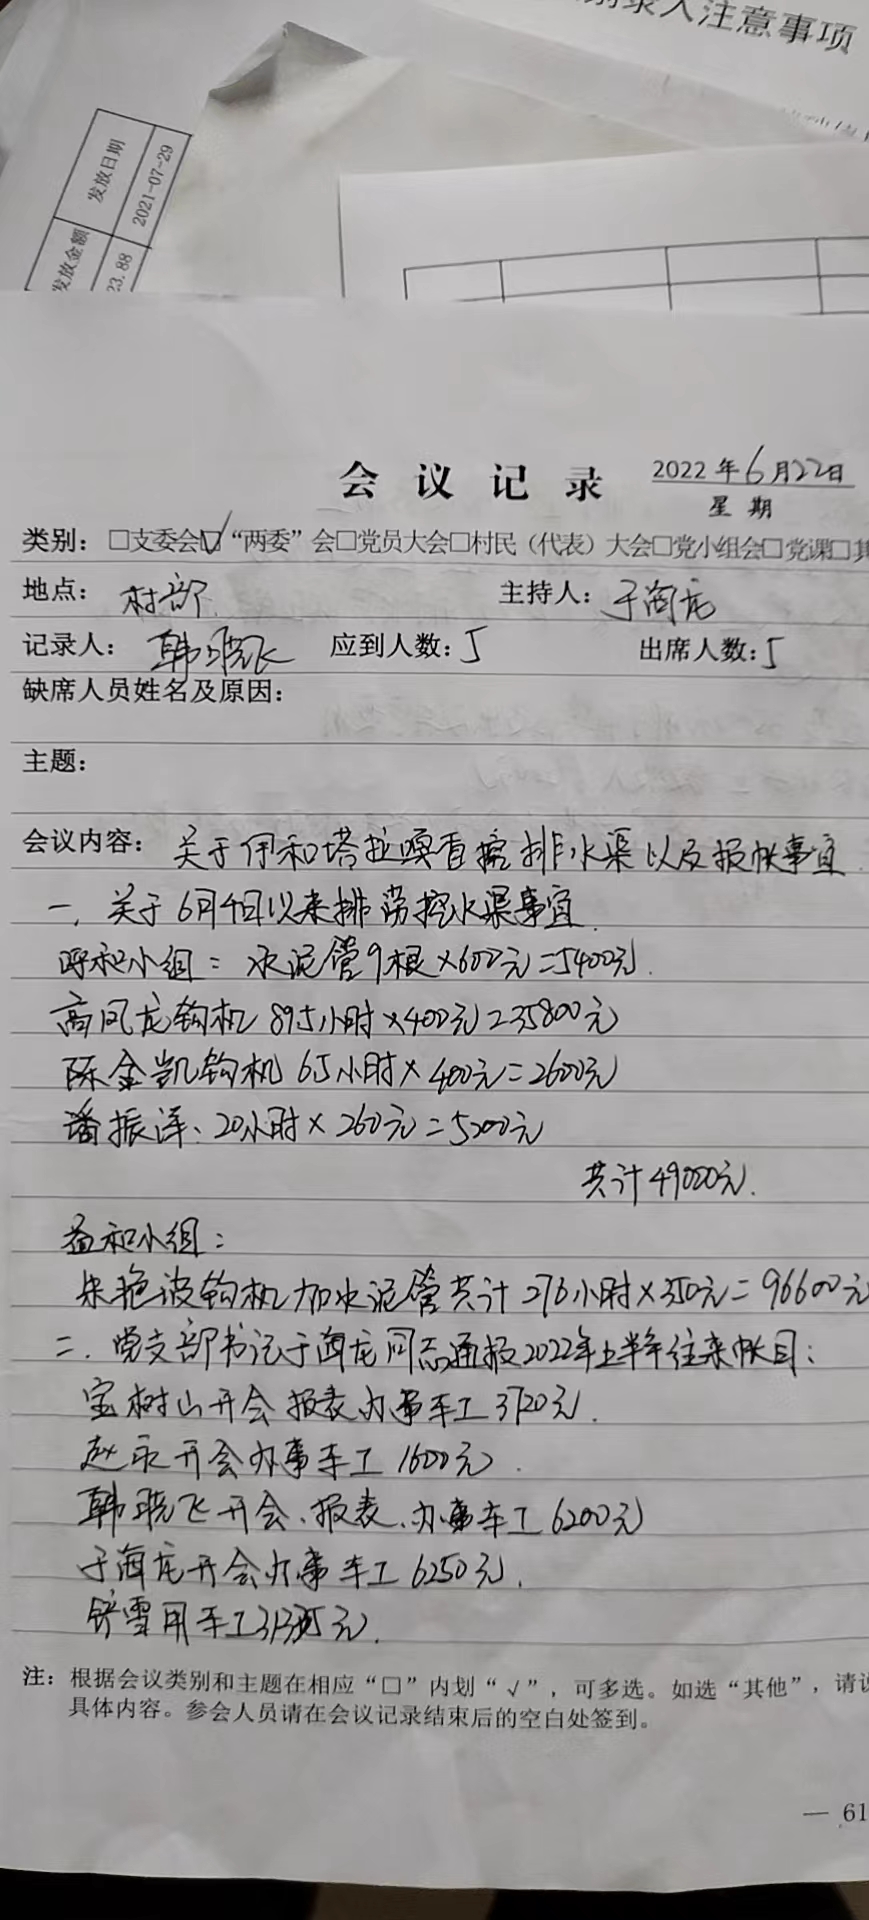 录入注意事项
发放日期
2021-07-29
发放金额
23.88
会议记录
2022年6月22日
星期
类别：□支委会☑“两委”会□党员大会□村民（代表）大会□党小组会□党课□其
地点：村部
主持人：于海龙
记录人：韩晓飞
应到人数：5
出席人数：5
缺席人员姓名及原因：
主题：
会议内容：关于伊和塔拉嘎查挖排水渠以及报帐事宜
一、关于6月4日以来排涝挖水渠事宜
呼和小组：水泥管9根×600元=5400元.
高凤龙钩机 89.5小时×400元=35800元
陈金凯钩机 6.5小时×400元=2600元
潘振洋：20小时×260元=5200元
共计49000元.
益和小组：
朱艳波钩机加水泥管共计 276小时×350元=96600元
二、党支部书记于海龙同志通报2022年上半年往来帐目：
宝树山开会报表办事车工3720元.
赵永开会办事车工1600元.
韩晓飞开会、报表、办事车工6200元
于海龙开会办事车工6250元.
铲雪用车工
注：根据会议类别和主题在相应“□”内划“√”，可多选。如选“其他”，请说
具体内容。参会人员请在会议记录结束后的空白处签到。
— 61